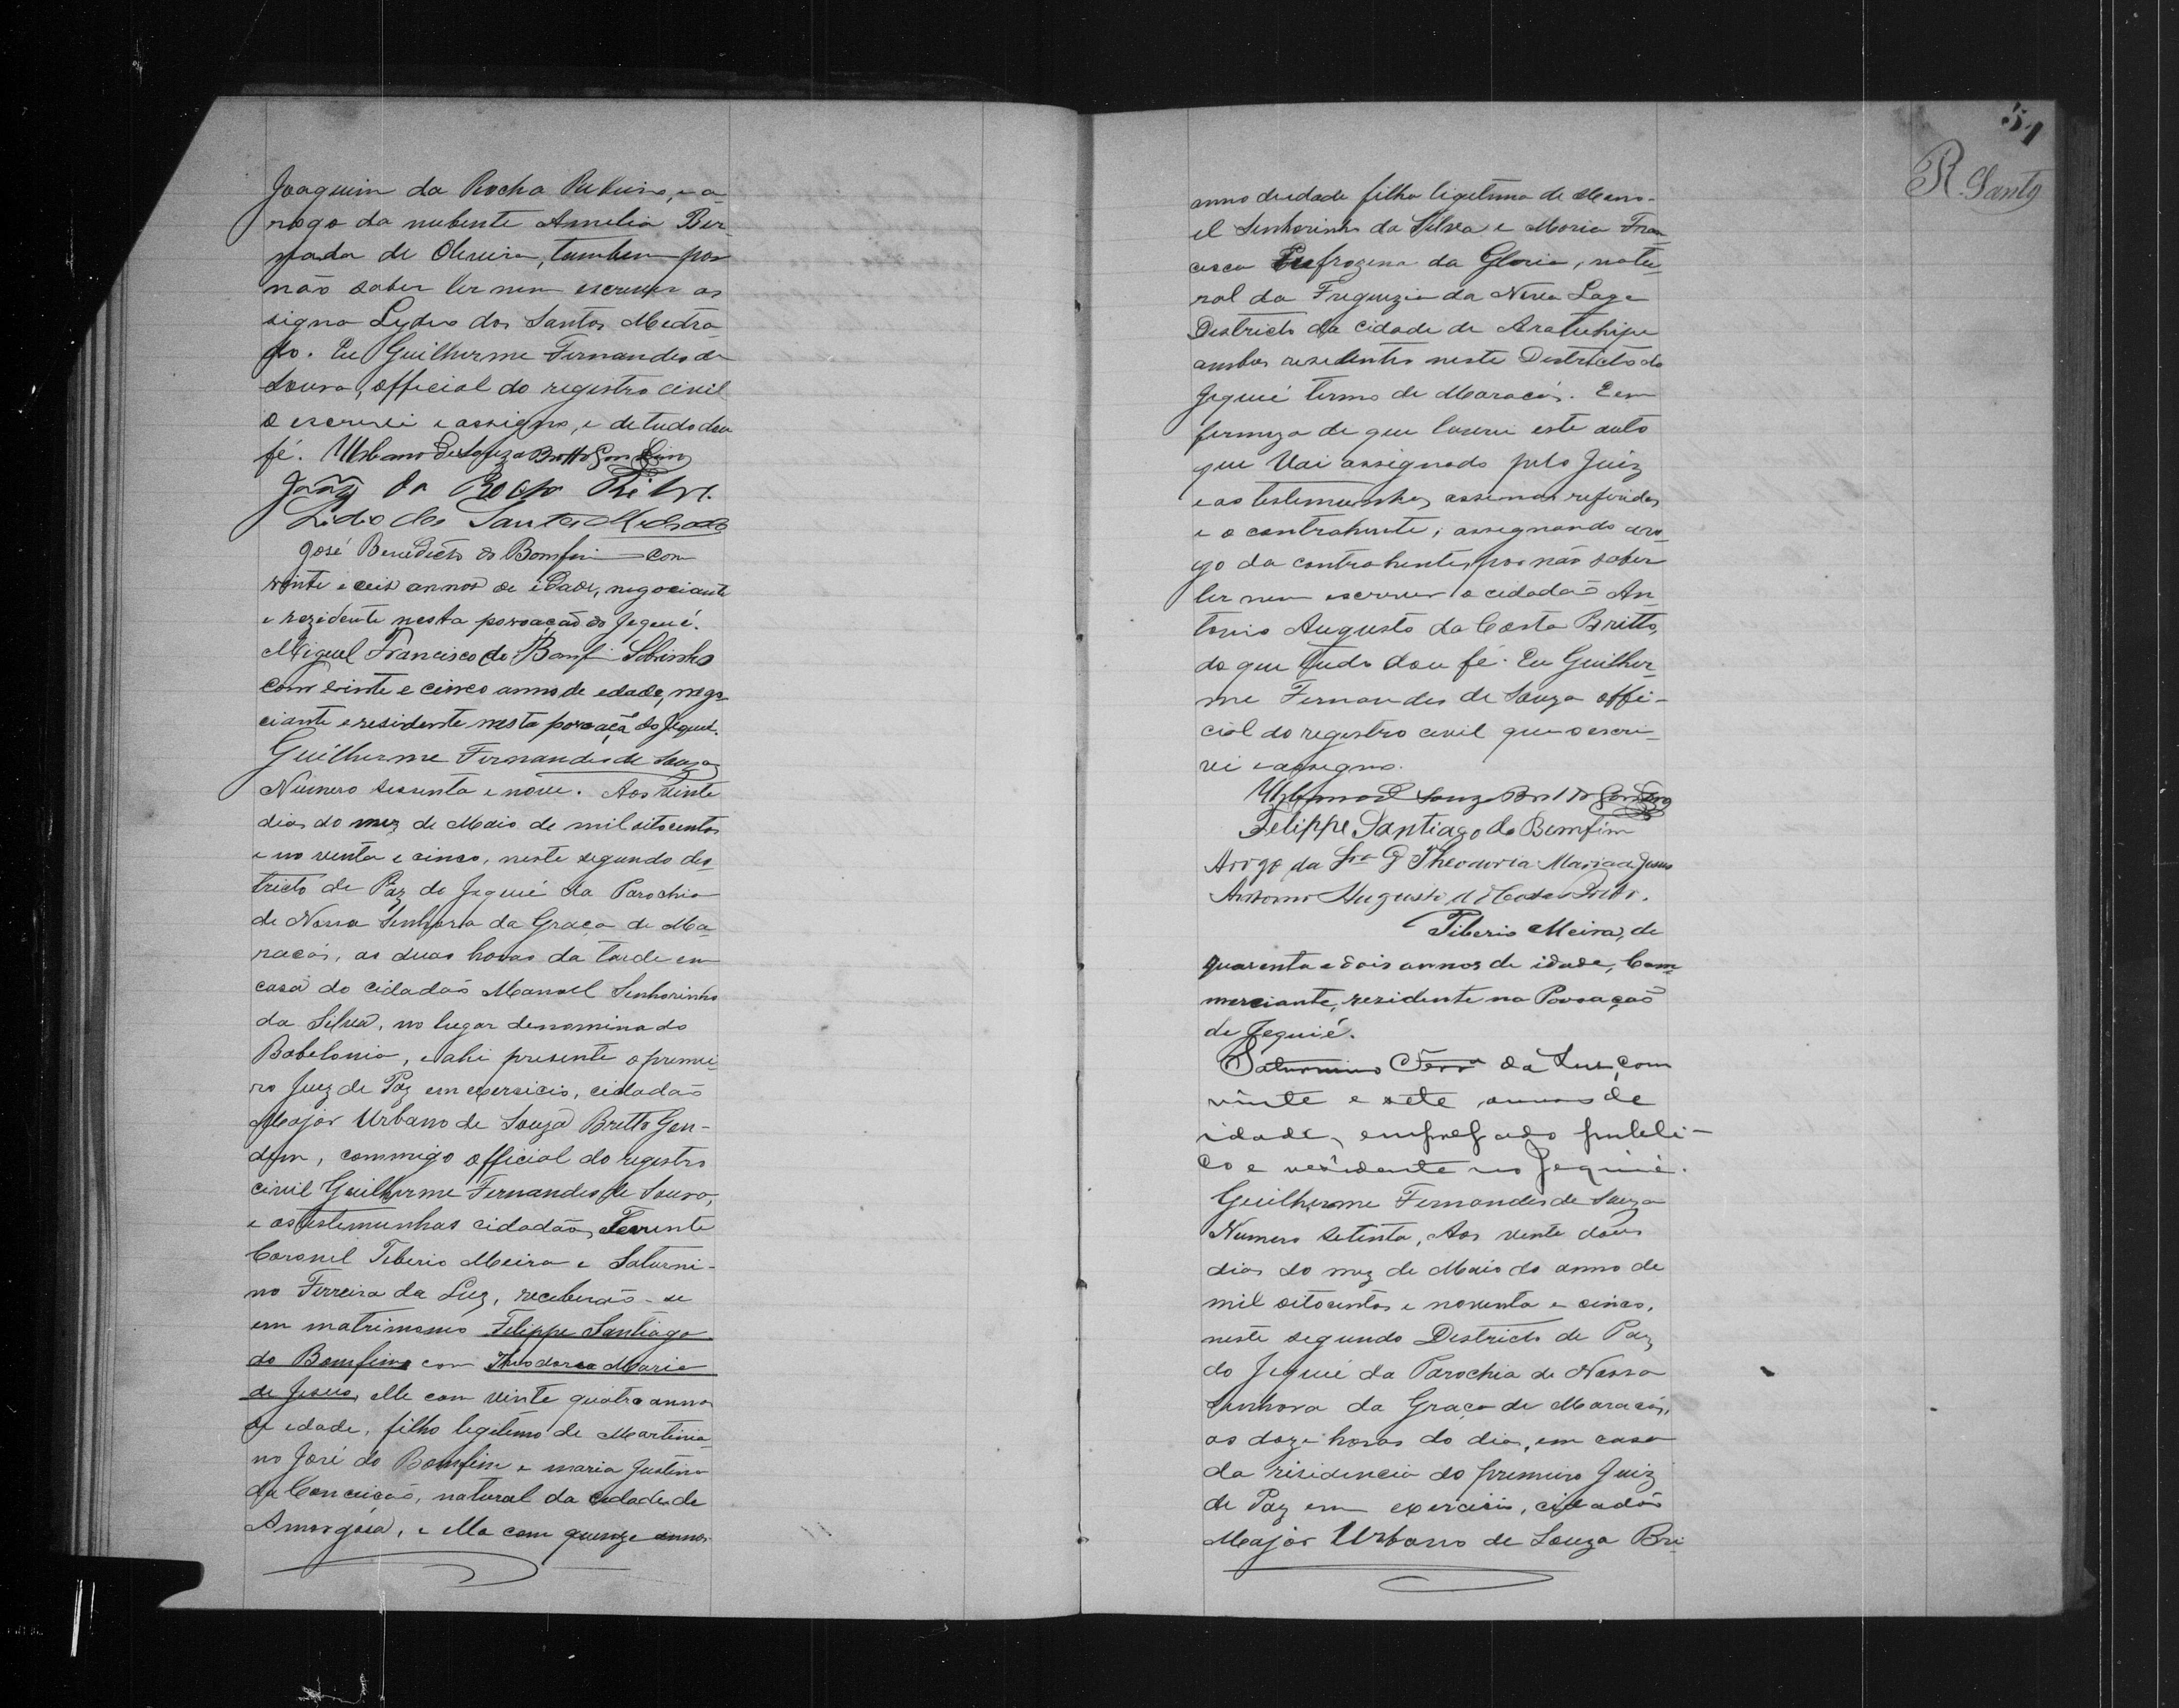 Joaquim da Rocha Ribeiro, e a
rogo da nubente Amelia Ber-
nada de Oliveira, tambem por
não saber ler nem escrever as
signa Lydio dos Santos Medra
do. Eu Guilherme Fernandes de
Souza, official do registro civil
o escrevi e assigno, e de tudo dou
fé. Urbano de Souza Britto Gondim
da Rocha
Lidio dos Santos Medrado
José Benedicto do Bomfim com
vinte e ceis annos de idade, negociante
e rezidente nesta povoação do Jequié.
Miguel Francisco do Bomfim Sobrinho
com vinte e cinco anno de edade, nego-
ciante e residente nesta povoação do Jequié.
Guilherme Fernandes de Souza
Numero sessenta e nove. Aos vinte
dias do mez de Maio de mil oitocentos
e no venta e cinco, neste segundo des
tricto de Paz de Jequié da Parochia
de Nossa Senhora da Graça de Ma-
racás, as duas horas da tarde em
casa do cidadão Manoel Senhorinho
da Silva, no lugar denominado
Babelonia, e ahi presente o primei
ro Juiz de Paz em exersicio, cidadão
Major Urbano de Souza Britto Gon-
dim, commigo official do registro
civil Guilherme Fernandes de Souza,
e as testemunhas cidadãos Tenente
Coronel Teberio Meira e Saturni-
no Ferreira da Luz, receberão-se
em matrimonio Filippe Santiago
do Bomfim com Theodora Maria
de Jesus, elle com vinte quatro annos
de edade, filho legitimo de Martinia-
no José do Bomfim e maria Justina
da Conceição, natural da cidade de
Amargosa, e ella com quinze annos
51
R. Santos
anno de edade filha legitima de Mano-
el Senhorinho da Silva e Maria Fran
cisca Eufrozena da Gloria, natu-
ral da Freguezia da Nova Lage
Destricto da Cidade de Aratuhipe
ambos residentes neste Destricto do
Jequié termo de Maracás. E em
firmeza de que lavrei este auto
que Vai assignado pelo Juiz
e as testemunhas assima referidas
e o contrahente, assignando aro-
go da contrahente, por não saber
ler nem escrever o cidadão An-
tonio Augusto da Costa Britto,
do que tudo dou fé. Eu Guilher-
me Fernandes de Souza offi-
cial do registro civil que o escre-
vi e assigno.
Urbano de Souza Britto Gondim
Felippe Santiago do Bomfim
Arogo da Maria de Jesus
Antonio Augusto da Costa Britto.
Tiberio Meira, de
quarenta e dois annos de idade, Com-
merciante, rezidente na Povoação
de Jequié.
Saturnino Ferra da Luz, com
vinte e sete annos de
idade, empregado publi-
co e residente no Jequié.
Guilherme Fernandes de Souza
Numero setenta, Aos vente dous
dias do mez de Maio do anno de
mil oitocentos e noventa e cinco,
neste segundo Destricto de Paz
do Jequié da Parochia de Nossa
Senhora da Graça de Maracás,
as doze horas do dia, em casa
da risidencia do premeiro Juiz
de Paz em exercicio, cidadão
Major Urbano de Souza Bri-